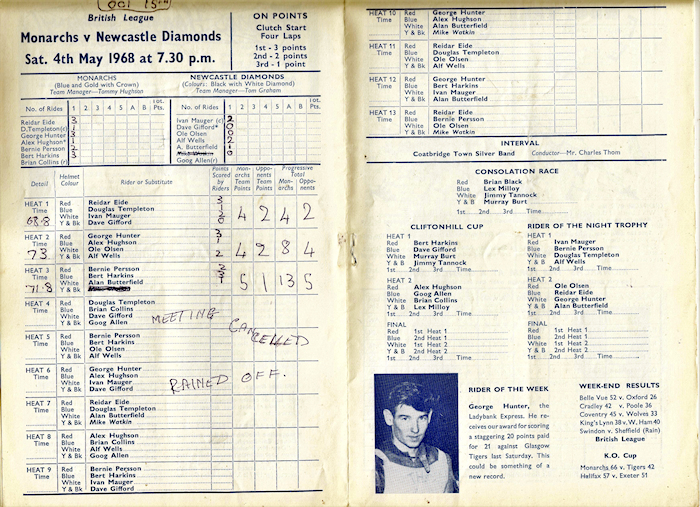 OCT 15TH
British League
Monarchs v Newcastle Diamonds
Sat. 4th May 1968 at 7.30 p.m.
ON POINTS
Clutch Start
Four Laps
1st - 3 points
2nd - 2 points
3rd - 1 point
MONARCHS
(Blue and Gold with Crown)
Team Manager—Tommy Hughson
NEWCASTLE DIAMONDS
(Colours: Black with White Diamond)
Team Manager—Tom Graham
No. of Rides 1 2 3 4 5 A B Tot. Pts.
Reidar Eide 3
D.Templeton(c) 1
George Hunter 3
Alex Hughson* 1
Bernie Persson 2
Bert Harkins 3
Brian Collins (r)
No. of Rides 1 2 3 4 5 A B Tot. Pts.
Ivan Mauger (c) 2
Dave Gifford* 0
Ole Olsen 0
Alf Wells 2
A. Butterfield 1
Goog Allen(r)
Detail Helmet Colour Rider or Substitute Points Scored by Riders Monarchs Team Points Opponents Team Points Progressive Total Monarchs Opponents
HEAT 1 Red Reidar Eide 3
Time Blue Douglas Templeton 1
68.8 White Ivan Mauger 2 4 2 4 2
Y & Bk Dave Gifford 0
HEAT 2 Red George Hunter 3
Time Blue Alex Hughson 1
73. White Ole Olsen 4 2 8 4
Y & Bk Alf Wells 2
HEAT 3 Red Bernie Persson 2
Time Blue Bert Harkins 3
71.8 White Alan Butterfield 1 5 1 13 5
Y & Bk
HEAT 4 Red Douglas Templeton
Time Blue Brian Collins
White Dave Gifford
Y & Bk Goog Allen
MEETING CANCELLED
HEAT 5 Red Bernie Persson
Time Blue Bert Harkins
White Ole Olsen
Y & Bk Alf Wells
HEAT 6 Red George Hunter
Time Blue Alex Hughson
White Ivan Mauger
Y & Bk Dave Gifford
RAINED OFF.
HEAT 7 Red Reidar Eide
Time Blue Douglas Templeton
White Alan Butterfield
Y & Bk Mike Watkin
HEAT 8 Red Alex Hughson
Time Blue Brian Collins
White Alf Wells
Y & Bk Goog Allen
HEAT 9 Red Bernie Persson
Time Blue Bert Harkins
White Ivan Mauger
Y & Bk Dave Gifford
HEAT 10 Red George Hunter
Time Blue Alex Hughson
White Alan Butterfield
Y & Bk Mike Watkin
HEAT 11 Red Reidar Eide
Time Blue Douglas Templeton
White Ole Olsen
Y & Bk Alf Wells
HEAT 12 Red George Hunter
Time Blue Bert Harkins
White Ivan Mauger
Y & Bk Alan Butterfield
HEAT 13 Red Reidar Eide
Time Blue Bernie Persson
White Ole Olsen
Y & Bk Mike Watkin
INTERVAL
Coatbridge Town Silver Band Conductor—Mr. Charles Thom
CONSOLATION RACE
Red Brian Black
Blue Lex Milloy
White Jimmy Tannock
Y & B Murray Burt
1st 2nd 3rd Time
CLIFTONHILL CUP
HEAT 1
Red Bert Harkins
Blue Dave Gifford
White Murray Burt
Y & B Jimmy Tannock
1st 2nd 3rd Time
HEAT 2
Red Alex Hughson
Blue Goog Allen
White Brian Collins
Y & B Lex Milloy
1st 2nd 3rd Time
FINAL
Red 1st Heat 1
Blue 2nd Heat 1
White 1st Heat 2
Y & B 2nd Heat 2
1st 2nd 3rd Time
RIDER OF THE NIGHT TROPHY
HEAT 1
Red Ivan Mauger
Blue Bernie Persson
White Douglas Templeton
Y & B Alf Wells
1st 2nd 3rd Time
HEAT 2
Red Ole Olsen
Blue Reidar Eide
White George Hunter
Y & B Alan Butterfield
1st 2nd 3rd Time
FINAL
Red 1st Heat 2
Blue 2nd Heat 1
White 1st Heat 1
Y & B 2nd Heat 2
1st 2nd 3rd Time
RIDER OF THE WEEK
George Hunter, the
Ladybank Express. He re-
ceives our award for scoring
a staggering 20 points paid
for 21 against Glasgow
Tigers last Saturday. This
could be something of a
new record.
WEEK-END RESULTS
Belle Vue 52 v. Oxford 26
Cradley 42 v. Poole 36
Coventry 45 v. Wolves 33
King's Lynn 38 v. W. Ham 40
Swindon v. Sheffield (Rain)
British League
K.O. Cup
Monarchs 66 v. Tigers 42
Halifax 57 v. Exeter 51